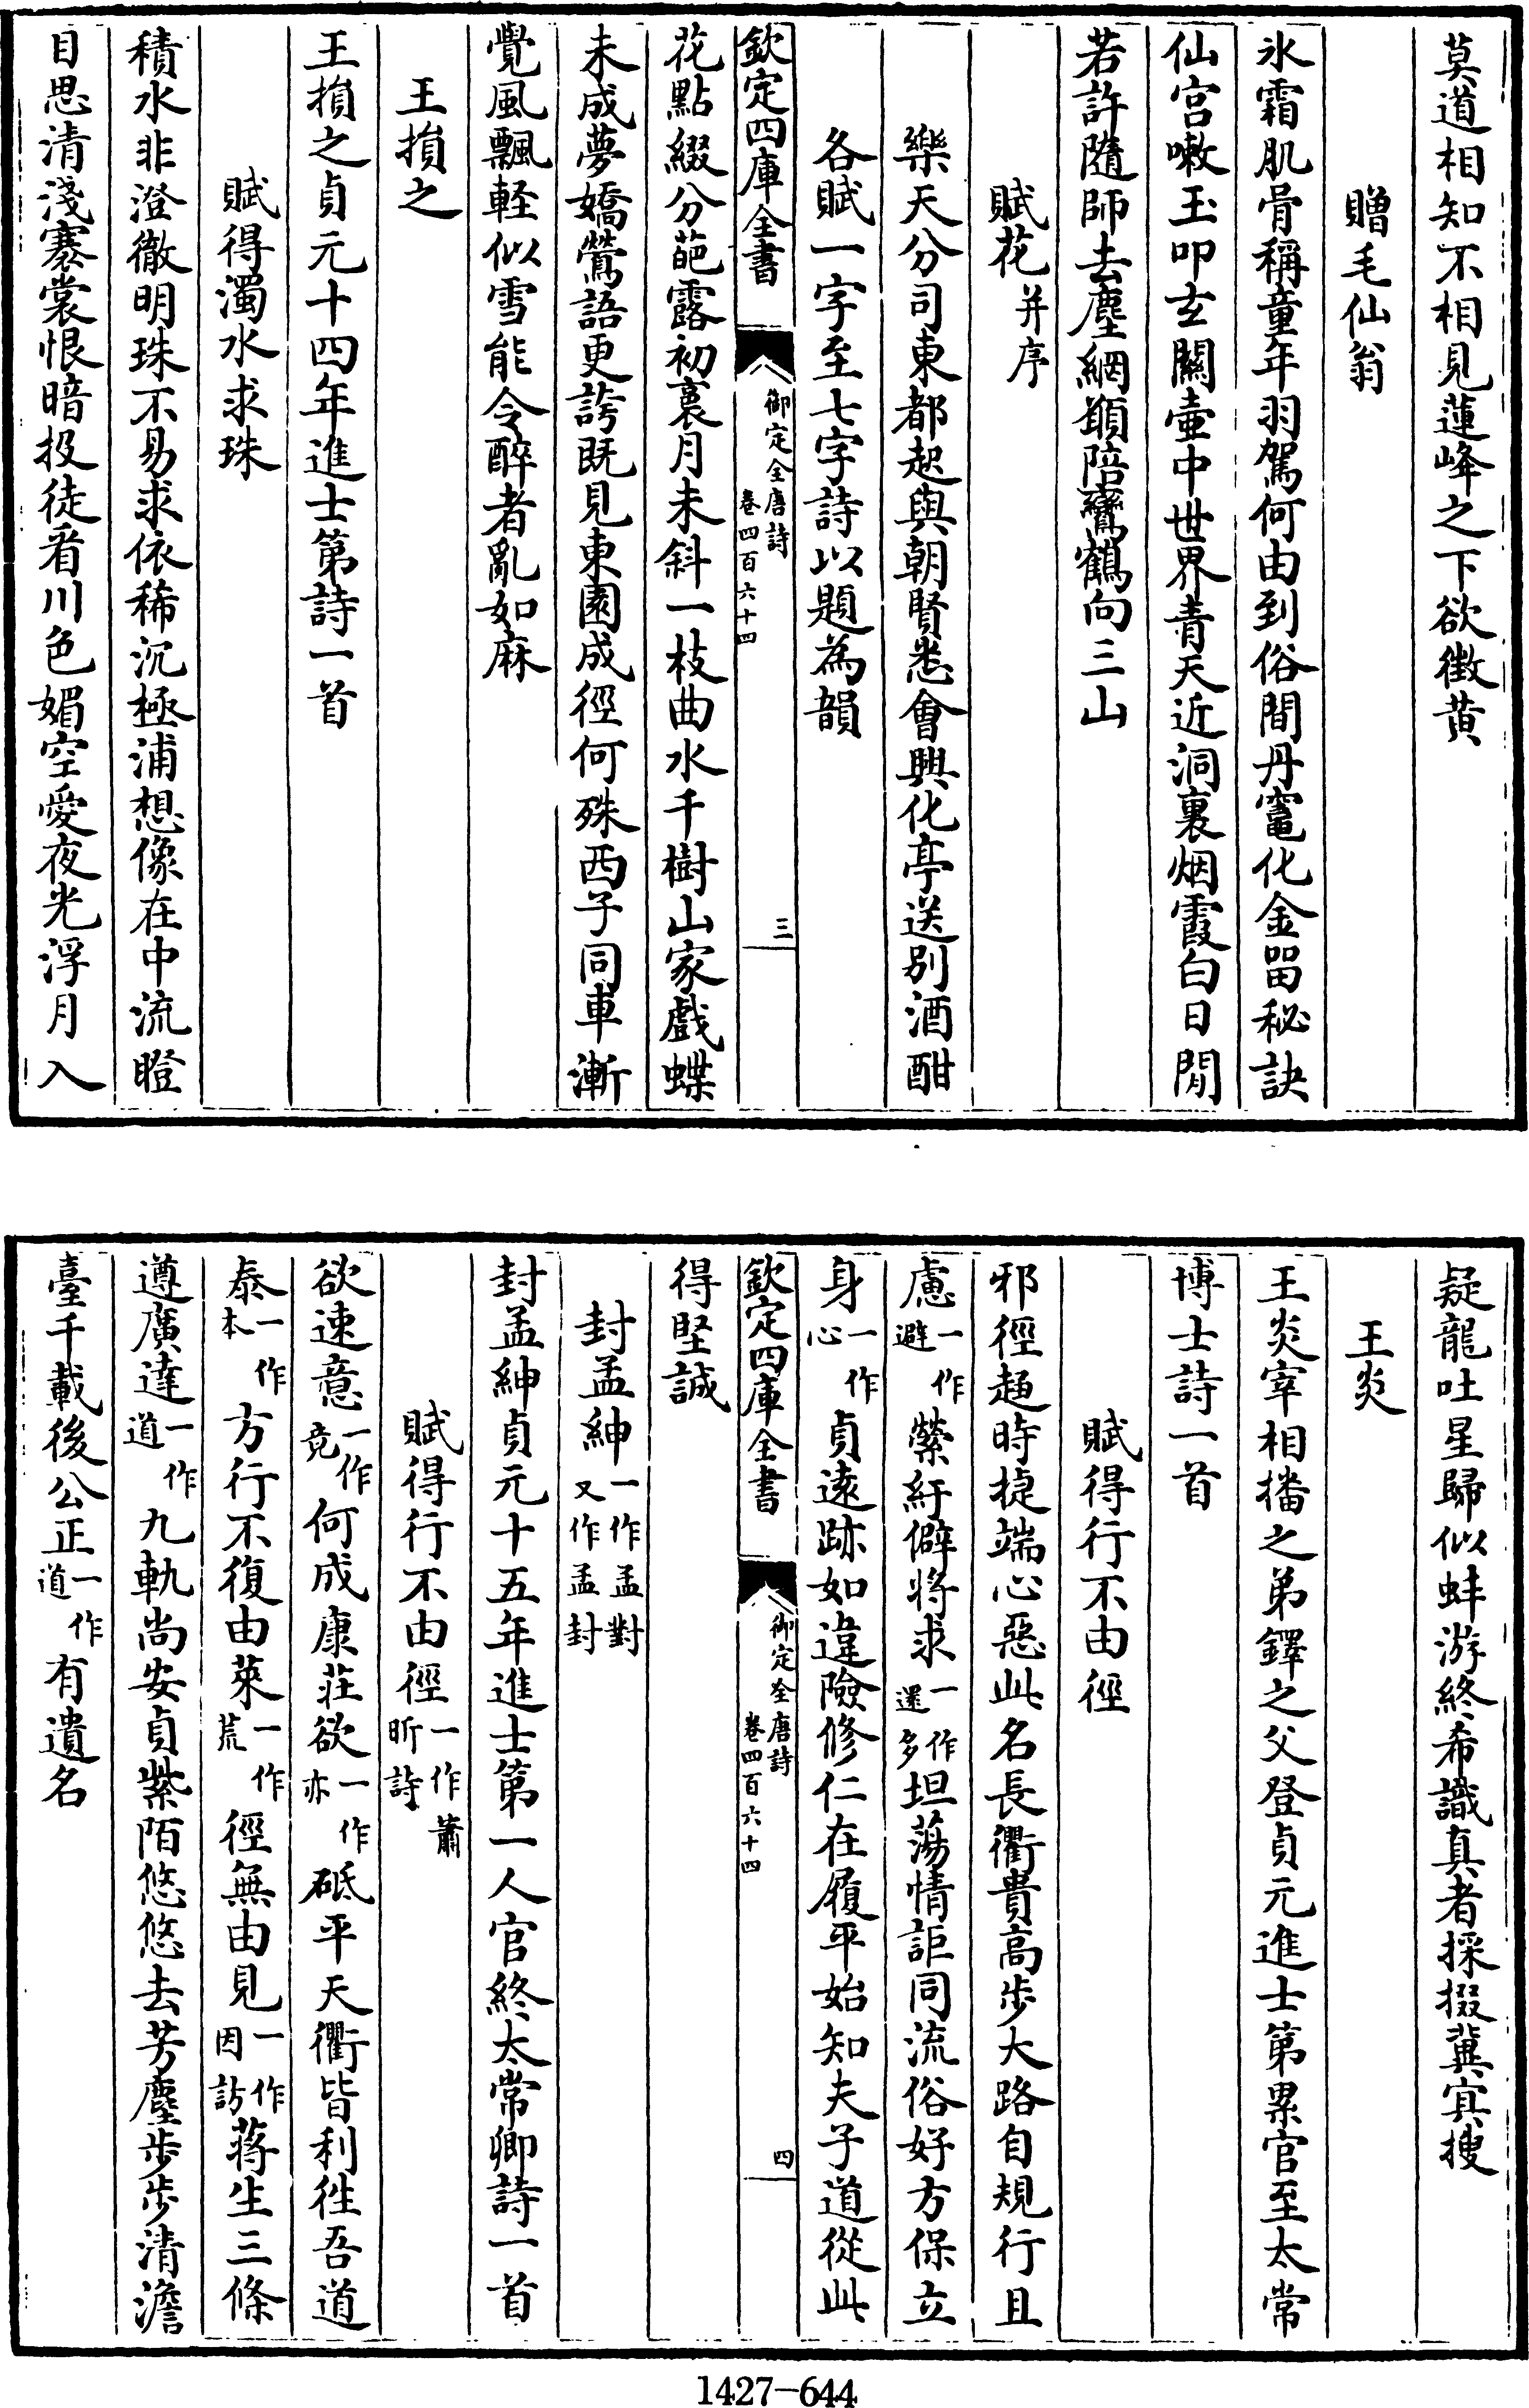 莫道相知不相見蓮峰之下欲徴黄
贈毛仙翁
氷霜肌骨稱童年羽駕何由到俗間丹竈化金留秘訣
仙宫嗽玉叩玄關壷中世界青天近洞裏烟霞白日閒
若許隨師去塵網願陪鸞鶴向三山
賦花并序
樂天分司東都起與朝賢悉會興化亭送别酒酣
各賦一字至七字詩以題為韻
欽定四庫全書
御定全唐詩
卷四百六十四
三
花點綴分葩露初裛月未斜一枝曲水千樹山家戲蝶
未成夢嬌鶯語更誇既見東園成徑何殊西子同車漸
覺風飄輕似雪能令醉者亂如麻
王損之
王損之貞元十四年進士第詩一首
賦得濁水求珠
積水非澄徹明珠不易求依稀沉極浦想像在中流瞪
目思清淺褰裳恨暗投徒看川色媚空愛夜光浮月入
疑龍吐星歸似蚌游終希識真者採掇冀冥搜
王炎
王炎宰相播之弟鐸之父登貞元進士第累官至太常
博士詩一首
賦得行不由徑
邪徑趨時捷端心惡此名長衢貴高步大路自規行且
慮一作避縈紆僻將求一作還多坦蕩情詎同流俗好方保立
身一作心貞遠跡如違險修仁在履平始知夫子道從此
欽定四庫全書
御定全唐詩
卷四百六十四
四
得堅誠
封孟紳一作孟對又作孟封
封孟紳貞元十五年進士第一人官終太常卿詩一首
賦得行不由徑一作蕭昕詩
欲速意一作竟何成康莊欲一作亦砥平天衢皆利徃吾道
泰一作本方行不復由萊一作荒徑無由見一作因訪蔣生三條
遵廣達一作道九軌尚安貞紫陌悠悠去芳塵步步清澹
臺千載後公正一作道有遺名
1427-644